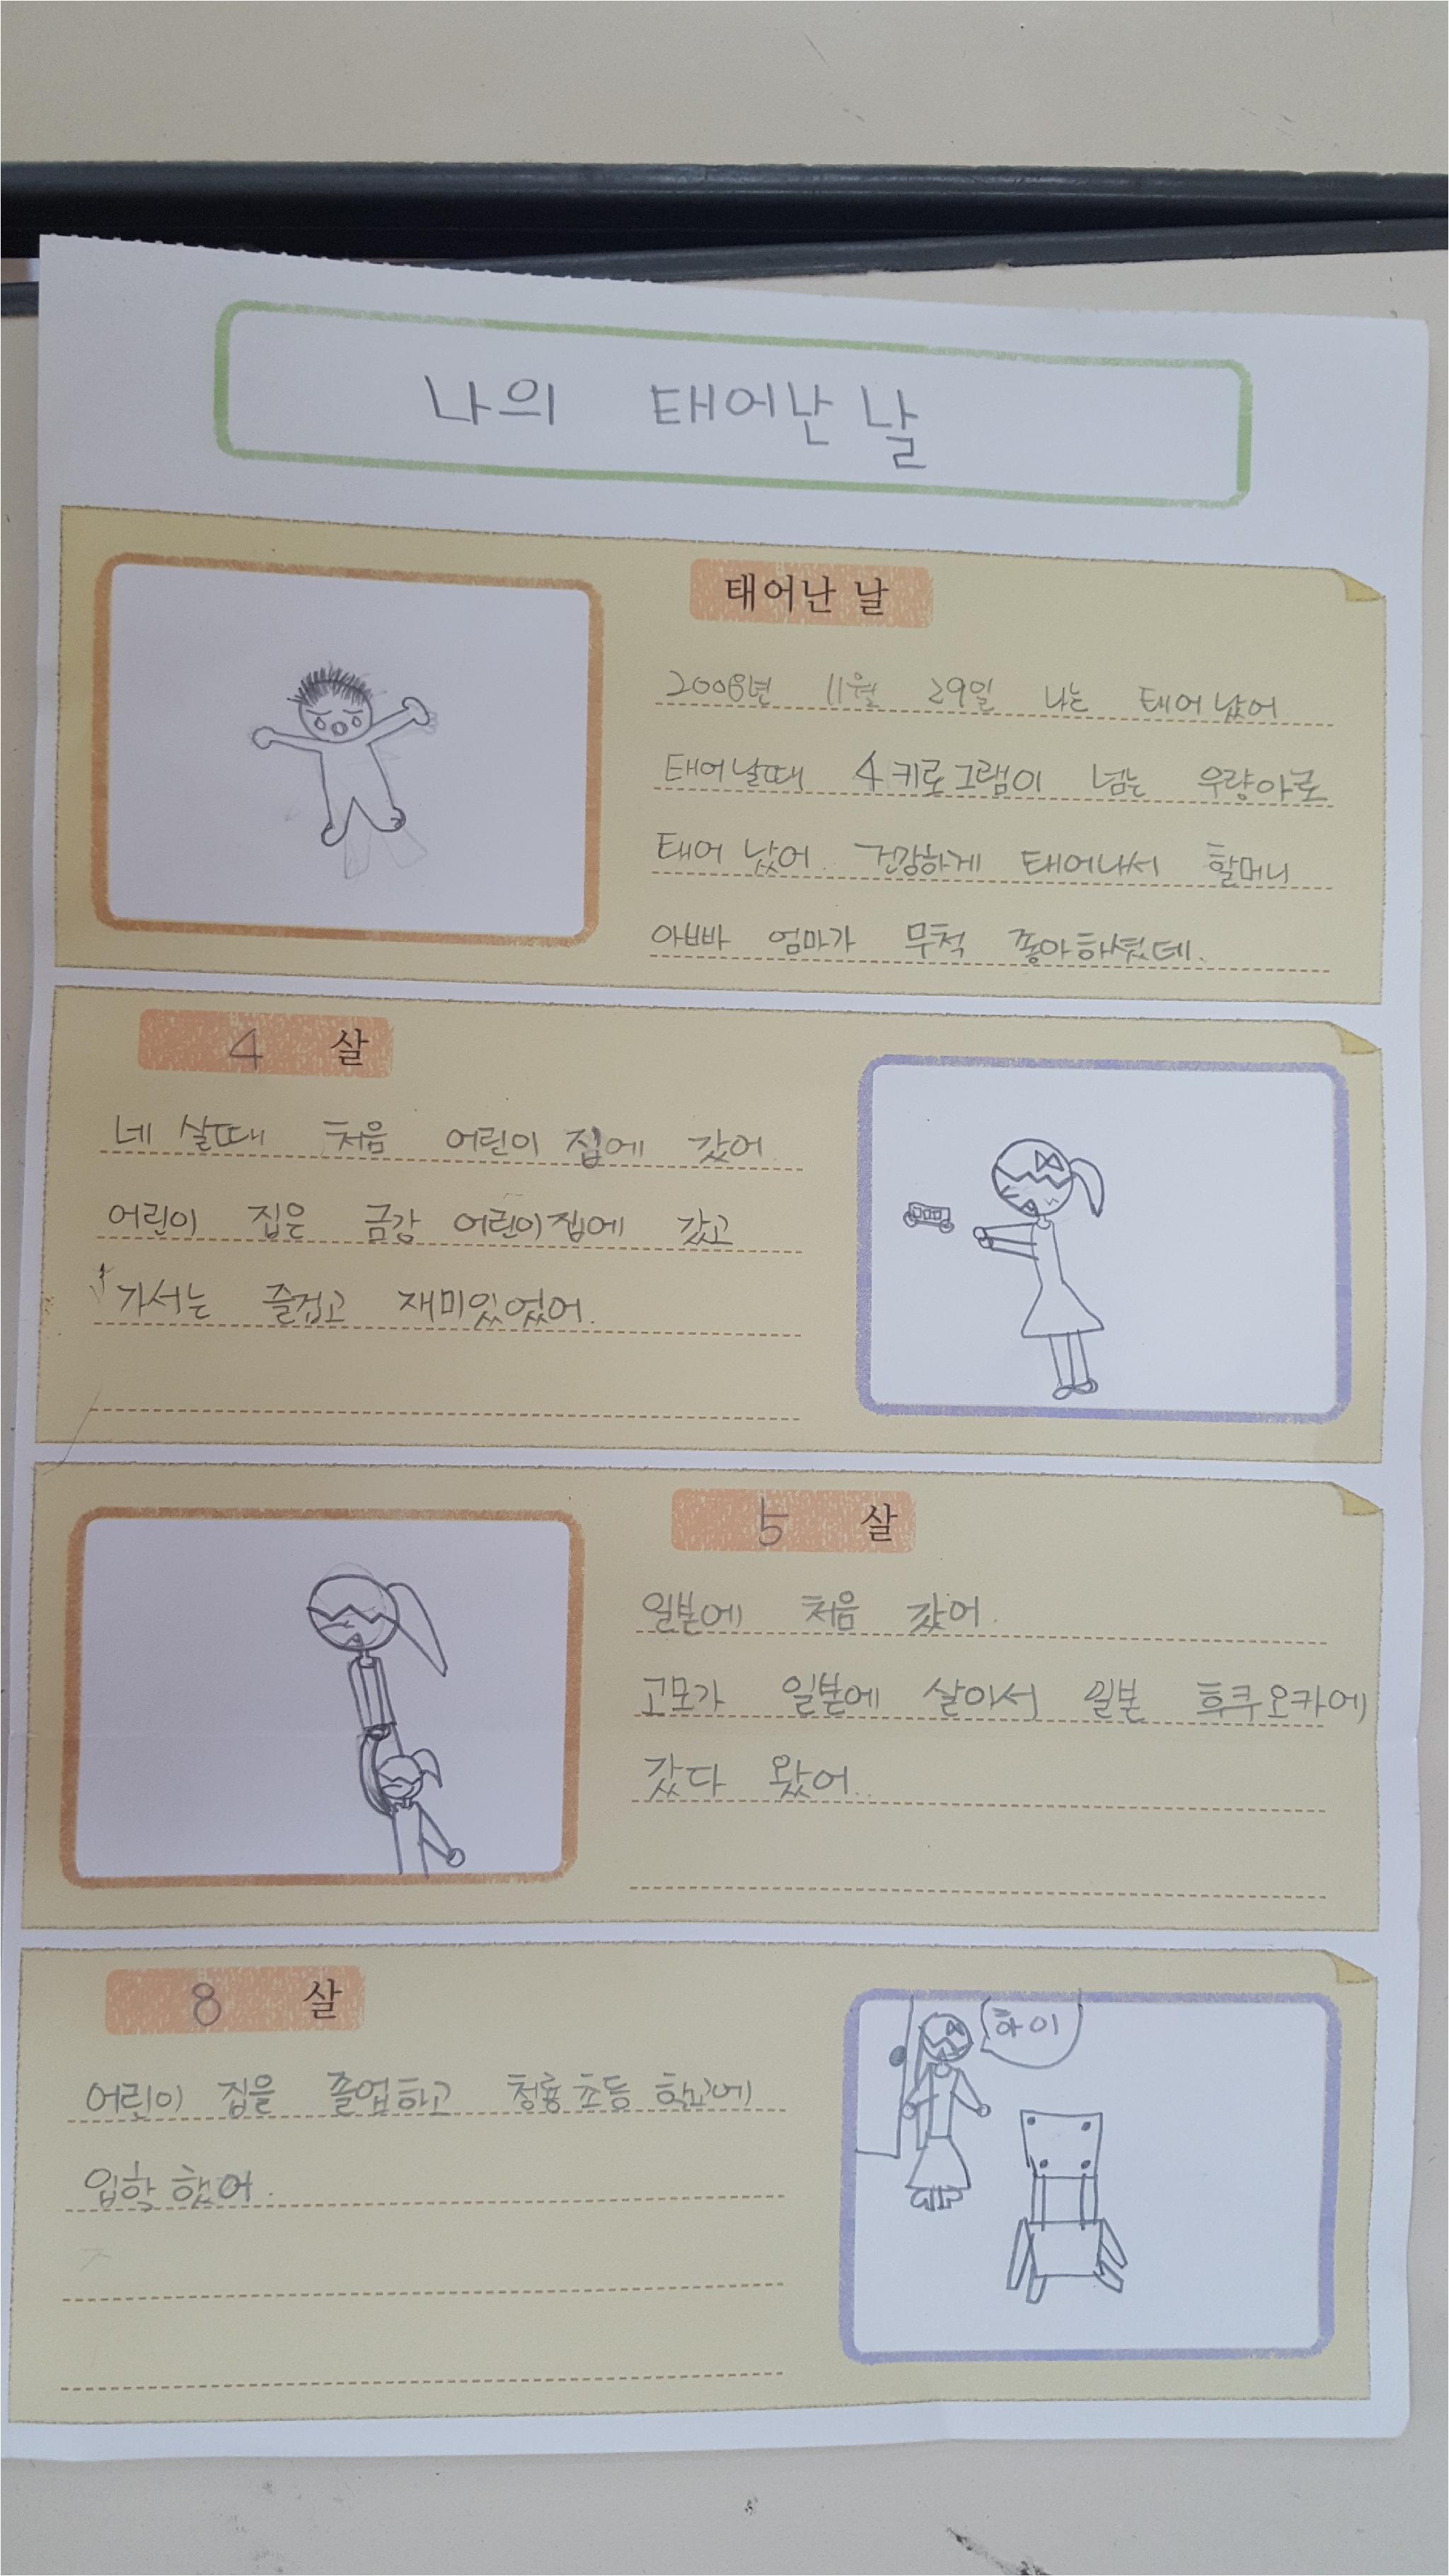 나의 태어난 날
태어난 날
2008년 11월 29일 나는 태어 났어
태어날때 4키로그램이 넘는 우량아로
태어 났어. 건강하게 태어나서 할머니
아빠 엄마가 무척 좋아하셨데.
4 살
네 살때 처음 어린이 집에 갔어
어린이 집은 금강 어린이집에 갔고
가서는 즐겁고 재미있었어.
5 살
일본에 처음 갔어.
고모가 일본에 살아서 일본 후쿠오카에
갔다 왔어..
8 살
하이
어린이 집을 졸업하고 청룡초등 학교에
입학 했어.